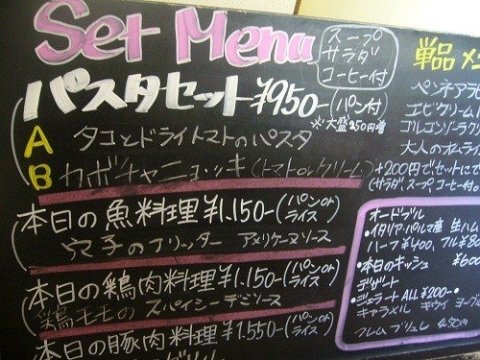 Set Menu
スープ
サラダ
コーヒー付
パスタセット ¥950-(パン付)
※大盛250円増
A タコとドライトマトのパスタ
B カボチャニョッキ(トマトorクリーム)
本日の魚料理 ¥1.150-(パンorライス)
穴子のフリッター アメリケーヌソース
本日の鶏肉料理 ¥1.150-(パンorライス)
鶏モモの スパイシーデミソース
本日の豚肉料理 ¥1.550-(パンorライス)
単品メニ
ペンネアラビ
エビクリーム
ゴルゴンゾーラクリ
大人のオムライ
+200円でセットにで
(サラダ、スープ、コーヒー付。
オードブル
・イタリア・パルマ産 生ハム
ハーフ¥400、フル¥80
・本日のキッシュ ¥600
デザート
・ジェラート ALL ¥200-・
キャラメル キウイ ヨーグル
クレム ブリュレ 450円